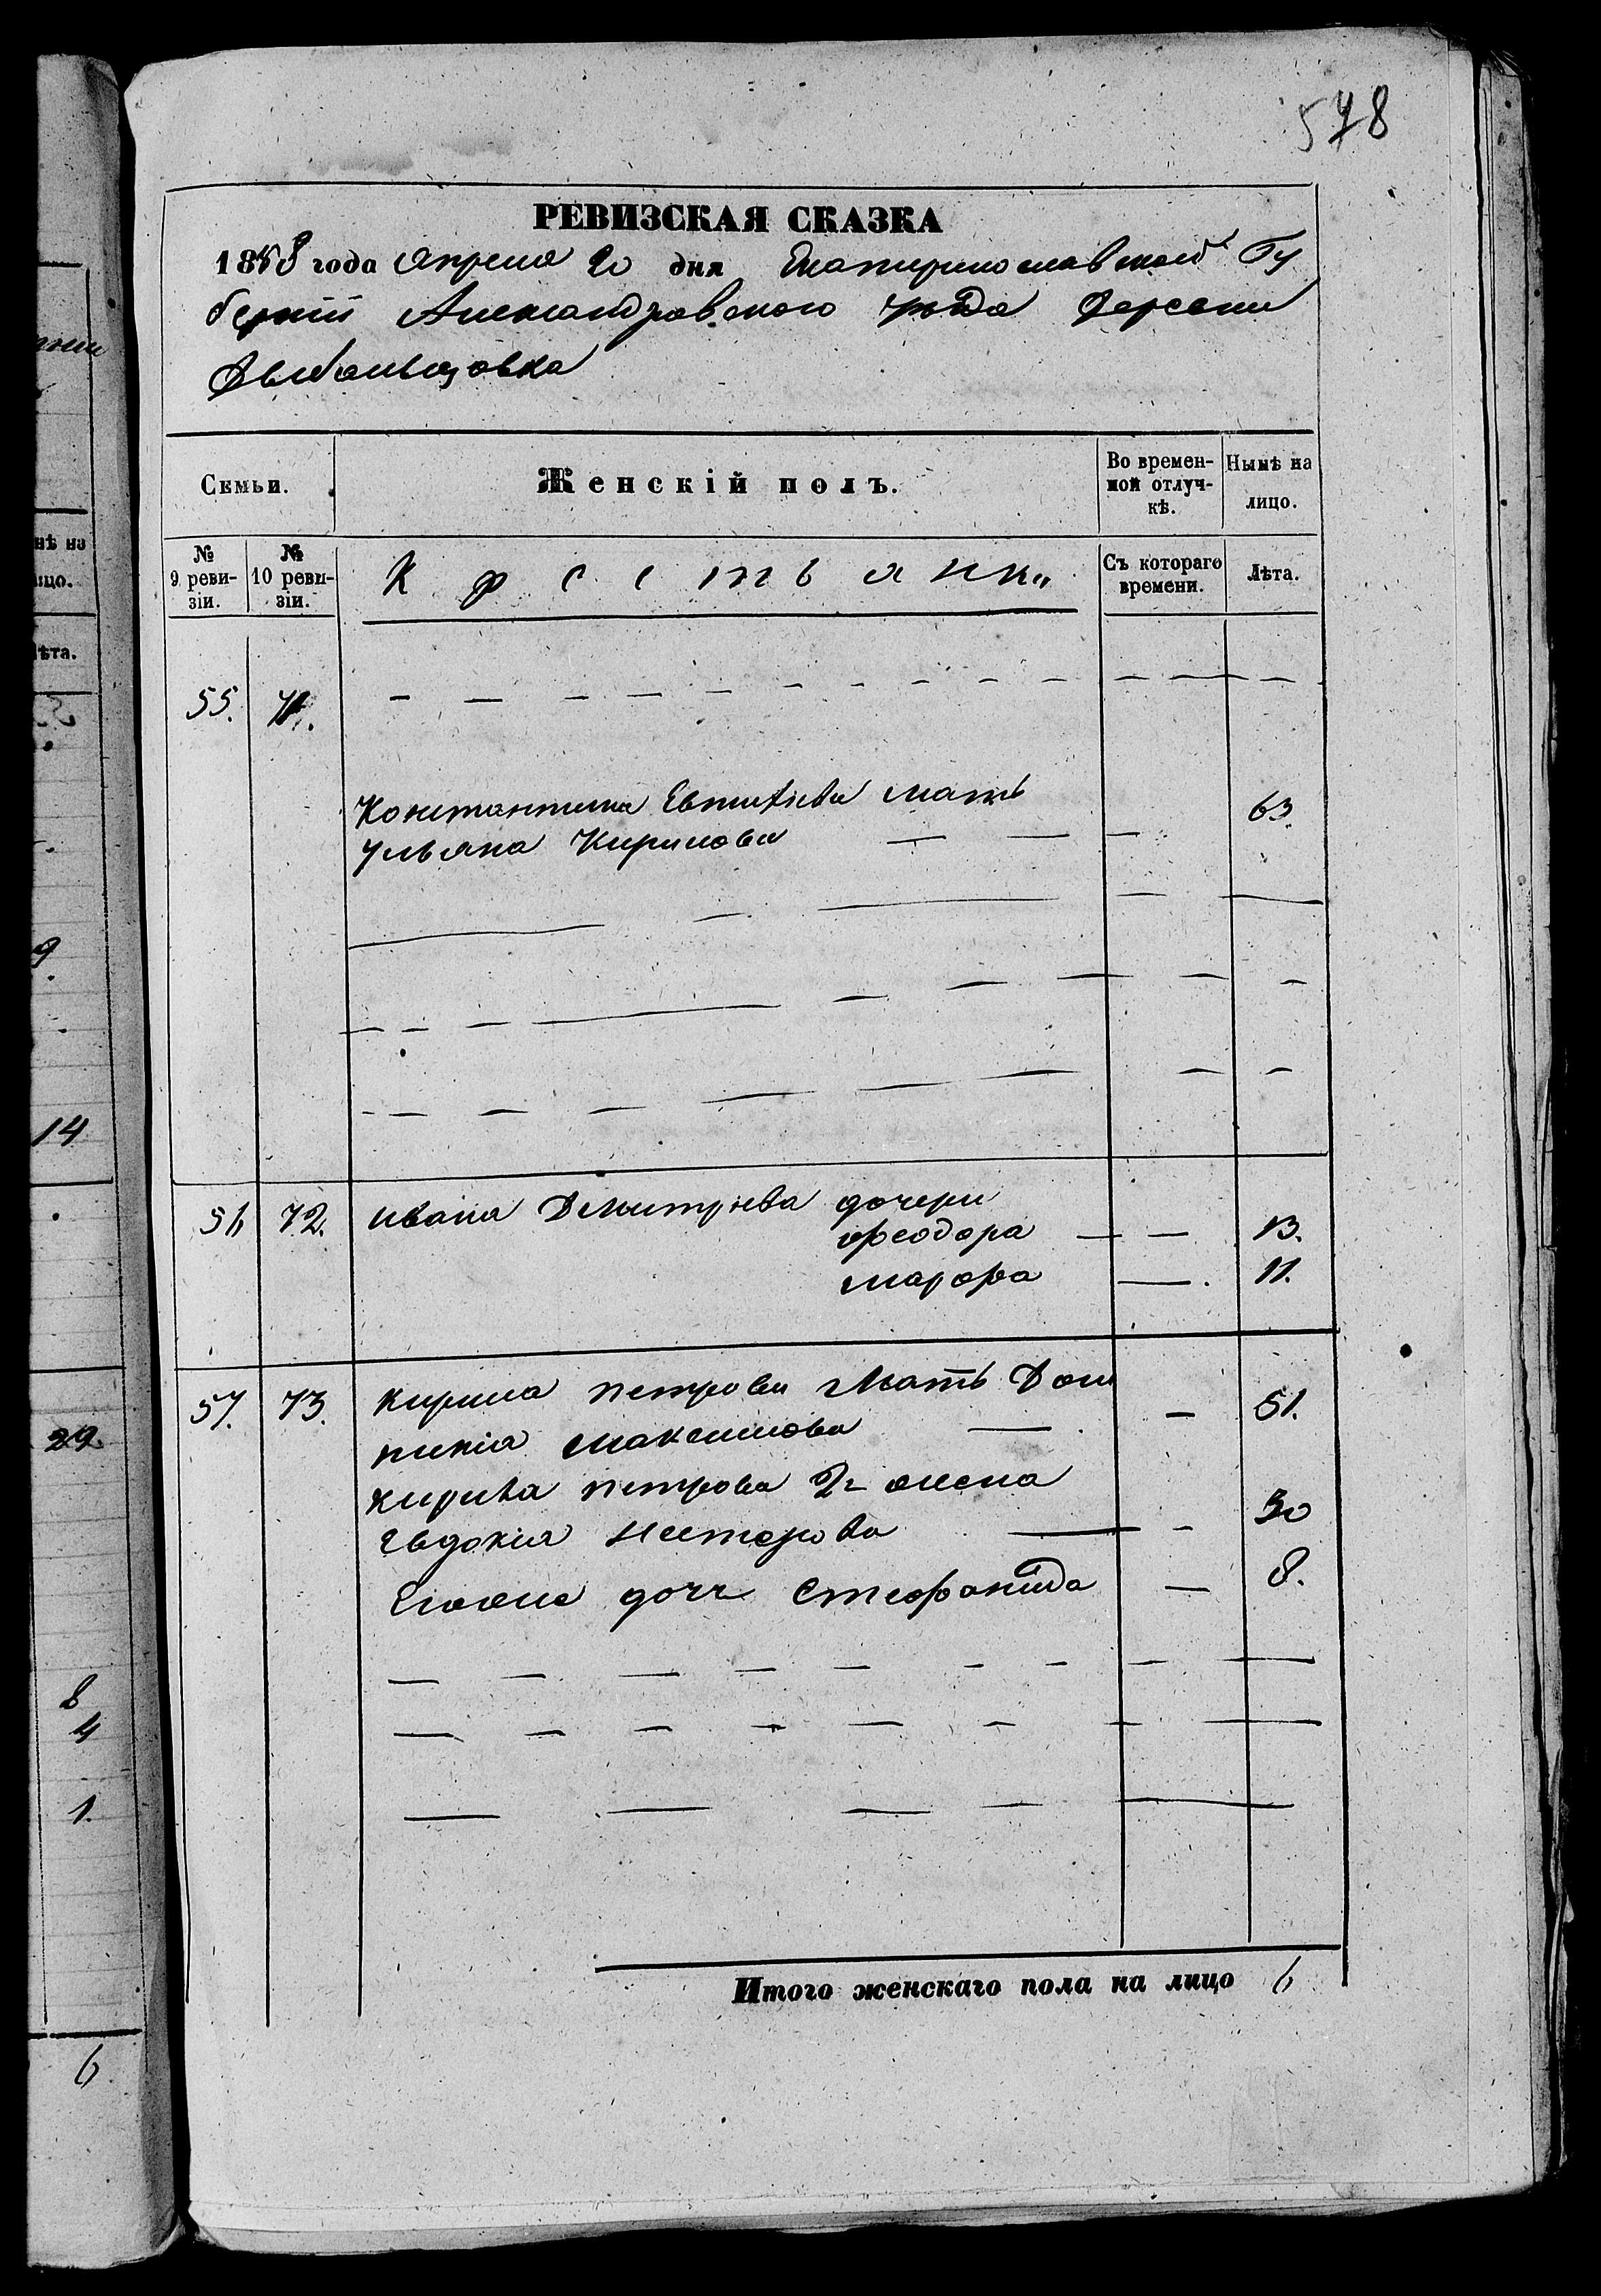 578
РЕВИЗСКАЯ СКАЗКА
1858 года Апреля 20 дня Екатеринославской Гу
берніи Александровского уѣзда Деревни
Семьи.
Женскій полъ.
Во времен-
ной отлуч-
кѣ.
Нынѣ на
лицо.
№
9 реви-
зіи.
№
10 реви-
зіи.
Крестьянки
Съ котораго
времени.
Лѣта.
55. 71.
Константина Евтифіева мать
Ульяна Кирилова 63.
56 72. Ивана Дмитриева дочери
Феодора 13.
Марфа 11.
57. 73. Кирила Петрова Мать Дом
никія Максимова 51.
Кирила Петрова 2я жена
Евдокія Нестерова 30
Еи дочь Стефанида 8.
Итого женскаго пола на лицо 6
нѣ на
лицо.
лѣта.
9
14
29.
8
4
1.
6